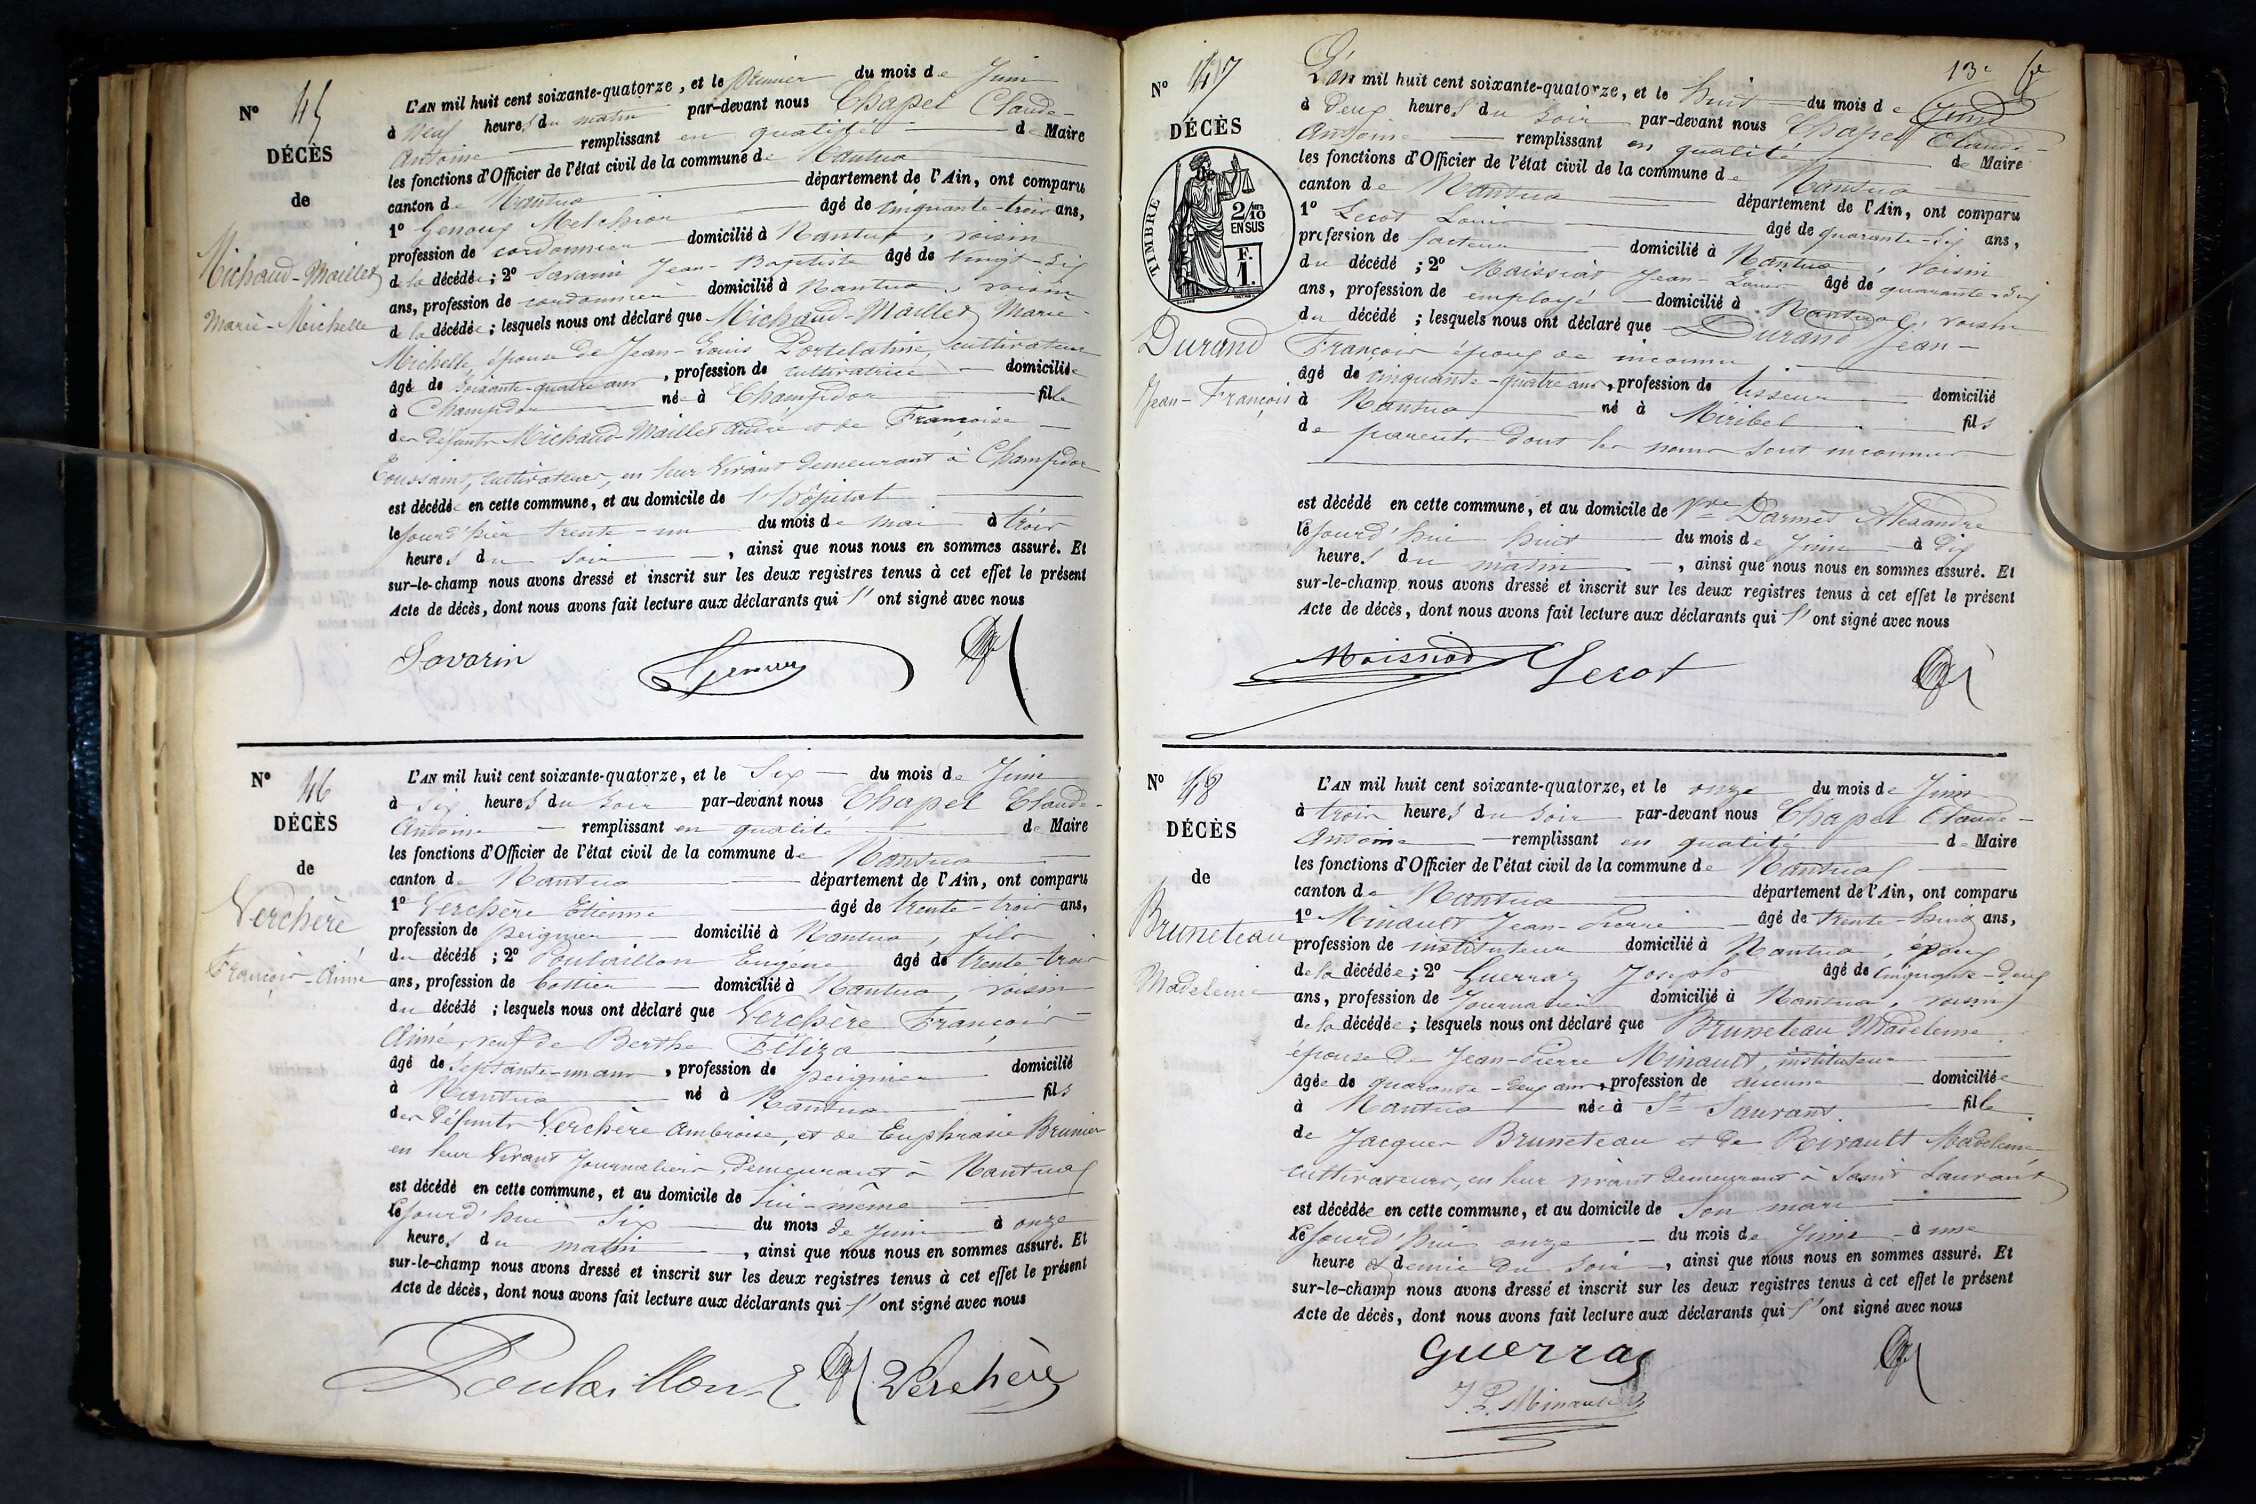 N° 45
DÉCÈS
de
Michaud-Maillet
Marie-Michelle
L'AN mil huit cent soixante-quatorze, et le premier du mois de Juin
à neuf heures du matin par-devant nous Chapel Claude-
Antoine remplissant en qualité de Maire
les fonctions d'Officier de l'état civil de la commune de Nantua
canton de Nantua département de l'Ain, ont comparu
1° Genoux Melchior âgé de cinquante-trois ans,
profession de cordonnier domicilié à Nantua, voisin
de la décédée; 2° Savarin Jean-Baptiste âgé de vingt-six
ans, profession de cordonnier domicilié à Nantua, voisin
de la décédée; lesquels nous ont déclaré que Michaud-Maillet Marie-
Michelle, épouse de Jean-Louis Portelatine, cultivateur
âgé de soixante-quatre ans, profession de cultivatrice domiciliée
à Champdor née à Champdor fille
des défunts Michaud-Maillet André et de Françoise
Toussaint, cultivateurs, en leur vivant demeurant à Champdor
est décédée en cette commune, et au domicile de l'hôpital
le jourd'hier trente-un du mois de mai à trois
heures du soir, ainsi que nous nous en sommes assuré. Et
sur-le-champ nous avons dressé et inscrit sur les deux registres tenus à cet effet le présent
Acte de décès, dont nous avons fait lecture aux déclarants qui l' ont signé avec nous
Savarin Genoux
N° 46
DÉCÈS
de
Verchère
François-Aimé
L'AN mil huit cent soixante-quatorze, et le six du mois de Juin
à six heures du soir par-devant nous Chapel Claude-
Antoine remplissant en qualité de Maire
les fonctions d'Officier de l'état civil de la commune de Nantua
canton de Nantua département de l'Ain, ont comparu
1° Verchère Etienne âgé de trente-trois ans,
profession de peignier domicilié à Nantua, fils
du décédé; 2° Poulaillon Eugène âgé de trente-trois
ans, profession de bottier domicilié à Nantua, voisin
du décédé; lesquels nous ont déclaré que Verchère François-
Aimé, veuf de Berthe Féliza
âgé de septante-un ans, profession de peignier domicilié
à Nantua né à Nantua fils
des défunts Verchère Ambroise, et de Euphrasie Brunier
en leur vivant journaliers, demeurant à Nantua
est décédé en cette commune, et au domicile de lui-même
le jourd'hui six du mois de juin à onze
heures du matin, ainsi que nous nous en sommes assuré. Et
sur-le-champ nous avons dressé et inscrit sur les deux registres tenus à cet effet le présent
Acte de décès, dont nous avons fait lecture aux déclarants qui l' ont signé avec nous
Poulaillon E Verchère
13e
N° 47
DÉCÈS
TIMBRE
2/10
EN SUS
F.
1.
Durand
Jean-François
L'an mil huit cent soixante-quatorze, et le huit du mois de Juin
à deux heures du soir par-devant nous Chapel Claude-
Antoine remplissant en qualité de Maire
les fonctions d'Officier de l'état civil de la commune de Nantua
canton de Nantua département de l'Ain, ont comparu
1° Lecot Louis âgé de quarante-six ans,
profession de facteur domicilié à Nantua, voisin
du décédé; 2° Moissiat Jean-Louis âgé de quarante-six
ans, profession de employé domicilié à Nantua, voisin
du décédé; lesquels nous ont déclaré que Durand Jean-
François époux de inconnue
âgé de cinquante-quatre ans, profession de tisseur domicilié
à Nantua né à Miribel fils
de parents dont les noms sont inconnus
est décédé en cette commune, et au domicile de Vve Darmès Alexandre
le jourd'hui huit du mois de Juin à dix
heures du matin, ainsi que nous nous en sommes assuré. Et
sur-le-champ nous avons dressé et inscrit sur les deux registres tenus à cet effet le présent
Acte de décès, dont nous avons fait lecture aux déclarants qui l' ont signé avec nous
Moissiat Lecot
N° 48
DÉCÈS
de
Bruneteau
Madeleine
L'AN mil huit cent soixante-quatorze, et le onze du mois de Juin
à trois heures du soir par-devant nous Chapel Claude-
Antoine remplissant en qualité de Maire
les fonctions d'Officier de l'état civil de la commune de Nantua
canton de Nantua département de l'Ain, ont comparu
1° Minault Jean-Pierre âgé de trente-huit ans,
profession de instituteur domicilié à Nantua, époux
de la décédée; 2° Guerraz Joseph âgé de cinquante-deux
ans, profession de Journalier domicilié à Nantua, voisin
de la décédée; lesquels nous ont déclaré que Bruneteau Madeleine
épouse de Jean-Pierre Minault, instituteur
âgée de quarante-deux ans, profession de aucune domiciliée
à Nantua née à St Saurant fille
de Jacques Bruneteau et de Rivault Madeleine
cultivateurs, en leur vivant demeurant à Saint Saurant
est décédée en cette commune, et au domicile de son mari
le jourd'hui onze du mois de Juin à une
heure et demie du soir, ainsi que nous nous en sommes assuré. Et
sur-le-champ nous avons dressé et inscrit sur les deux registres tenus à cet effet le présent
Acte de décès, dont nous avons fait lecture aux déclarants qui l' ont signé avec nous
Guerraz
J. P. Minault